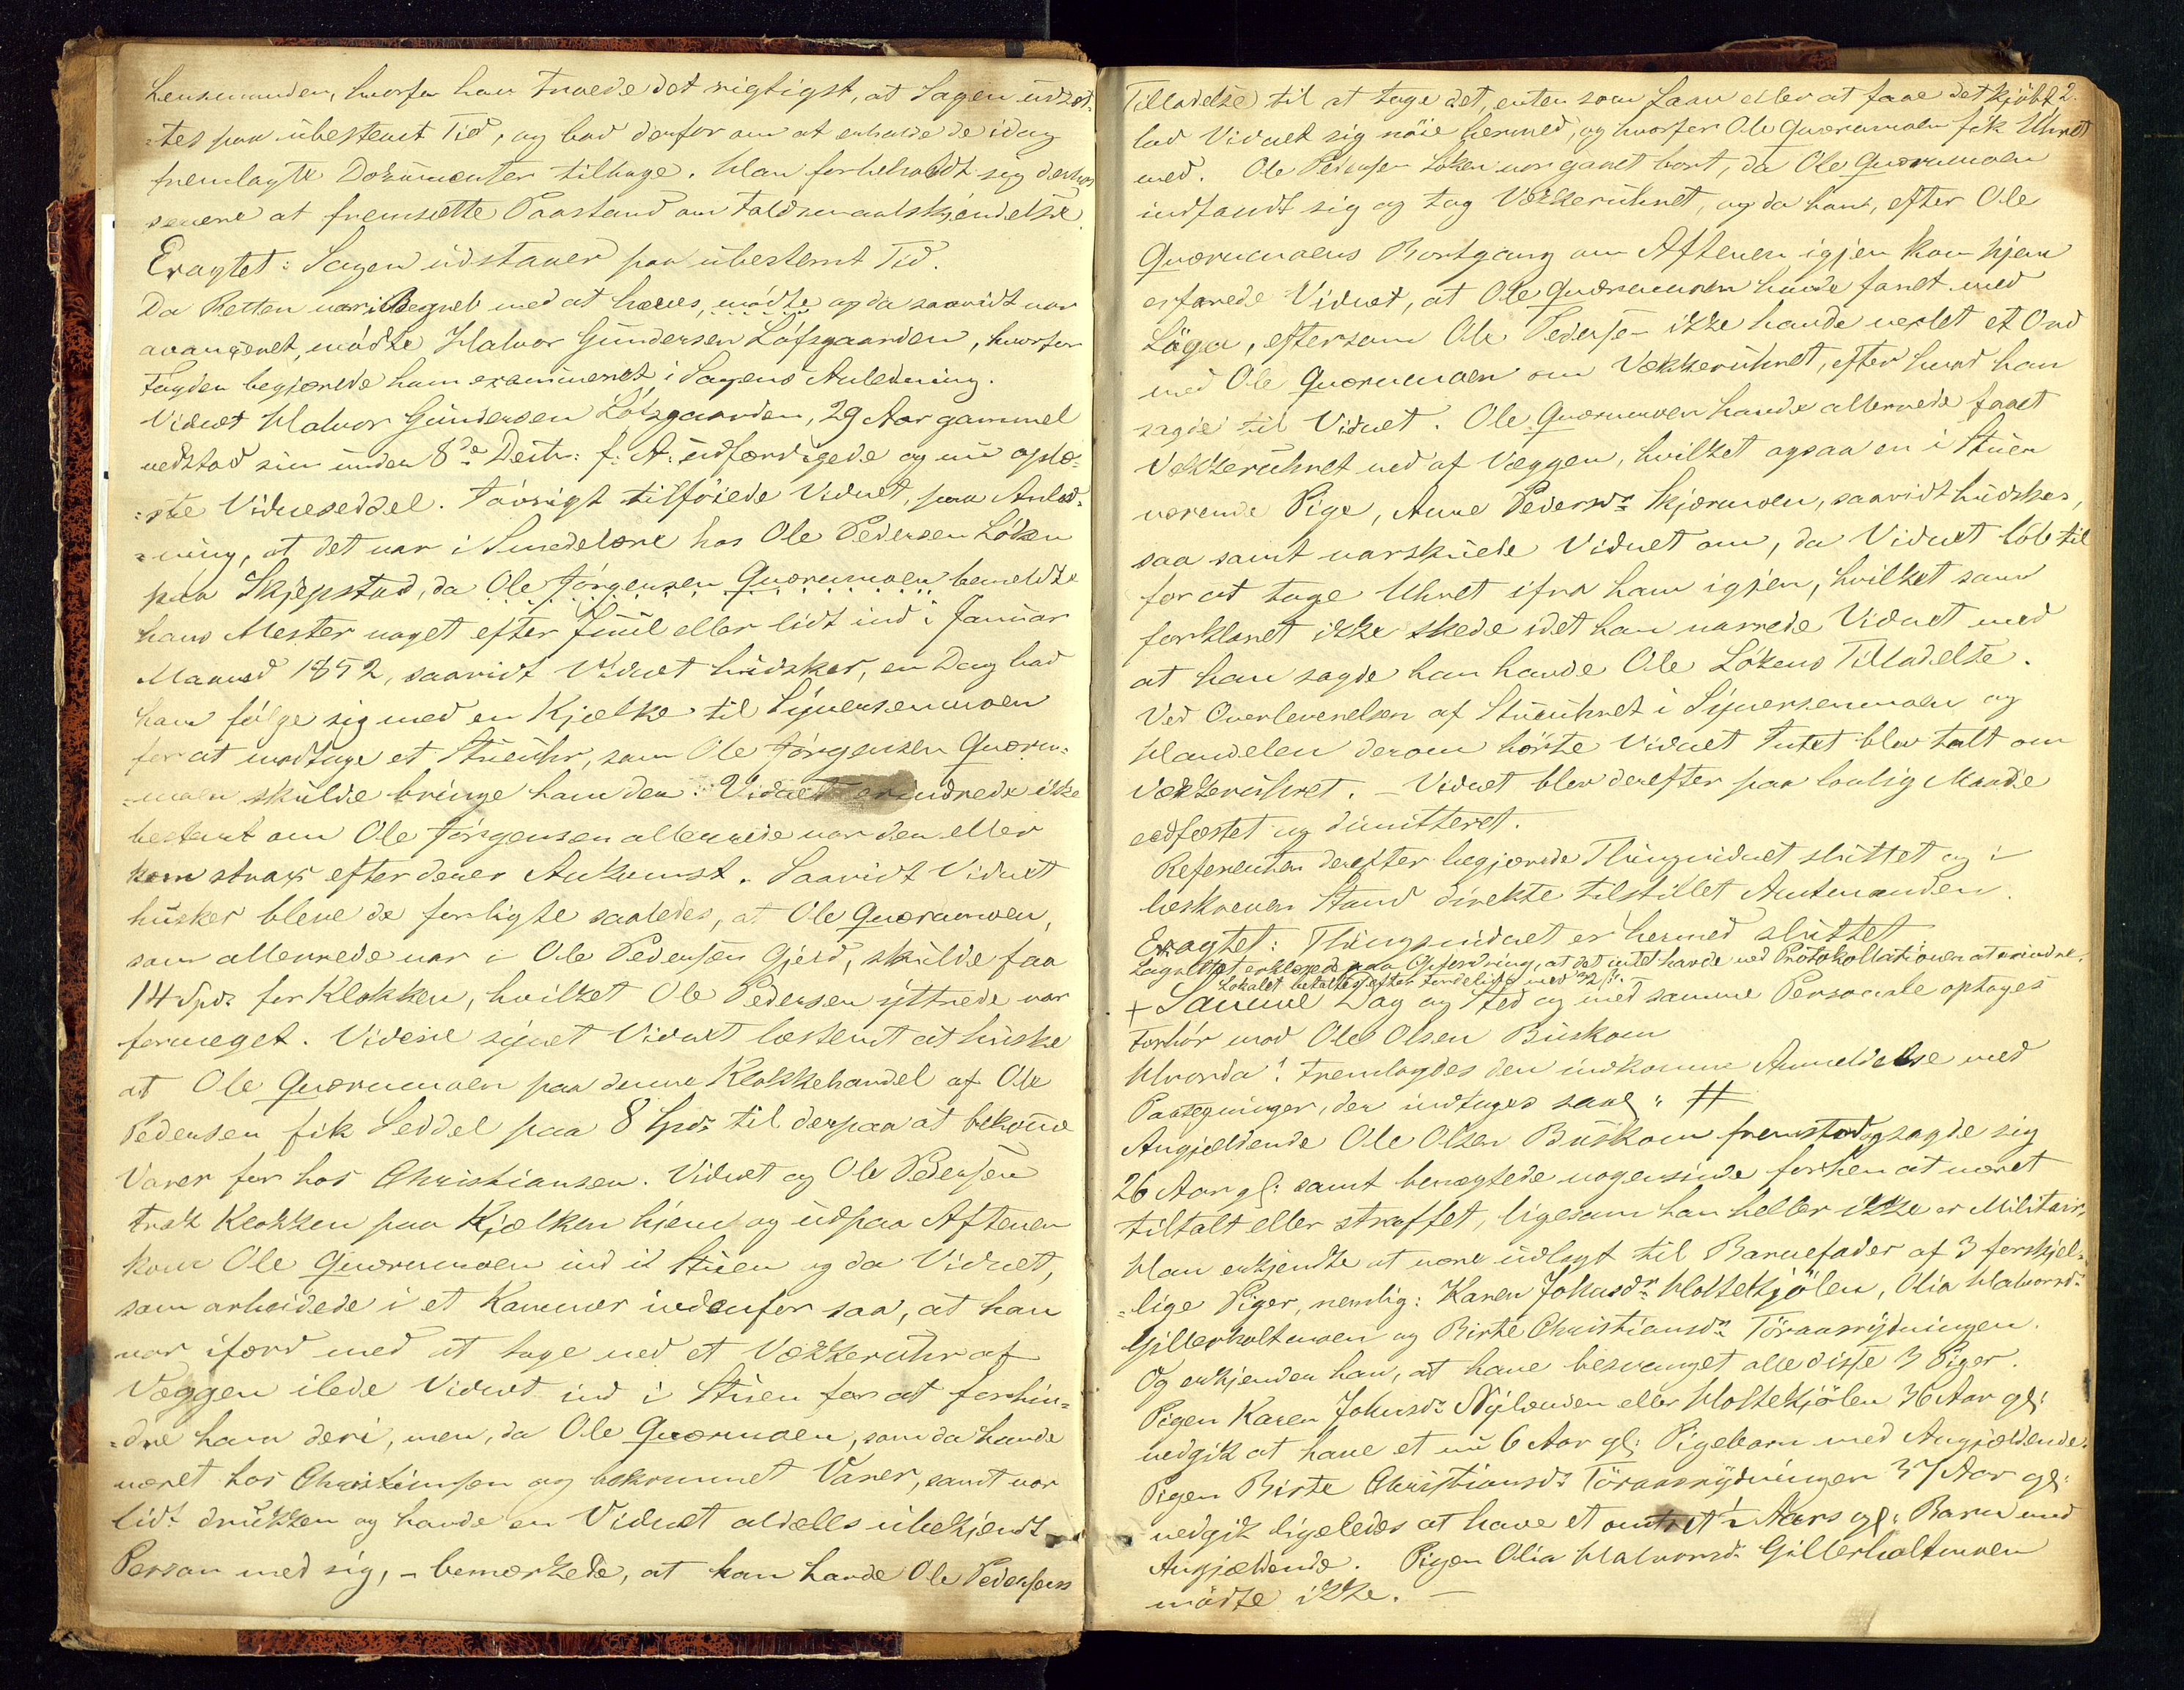 Lensmanden, hvorfor han troede det rigtigst, at Sagen udsæt-
-tes paa ubestemt Tid, og bad derfor om at erholde de idag
fremlagte Dokumenter tilbage. Han forbeholdt sig derhos
senere at fremsætte Paastand om Faldsmaalskjendelse.
Eragtet: Sagen udstaaer paa ubestemt Tid.
Da Retten var i Begreb med at hæves, mødte og da saavidt var
avanceret, mødte Halvor Gundersen Löfsgaarden, hvorfor
Fogden begjærede ham examineret i Sagens Anledning.
Vidnet Halvor Gundersen Löfsgaarden, 29 Aar gammel
vedstod sin under 8de Decbr: f: A: udfærdigede og nu oplæ-
-ste Vidneseddel. Forövrigt tilföiede Vidnet, paa Anled-
-ning, at det var i Smedelære hos Ole Pedersen Löken
paa Skjepstad, da Ole Jörgensen Quærnmoen bemeldte
hans Mester noget efter Juul eller lidt ind i Januar
Maaned 1852, saavidt Vidnet huusker, en Dag bad
ham fölge sig med en Kjælke til Syversenmoen
for at modtage et Stueuhr, som Ole Jörgensen Quærn-
-moen skulde bringe ham der. Vidnet erindrede ikke
bestemt om Ole Jörgensen allerede var der eller
kom strax efter deres Ankomst. Saavidt Vidnet
husker bleve de forligte saaledes, at Ole Quærnmoen,
som allerrede var i Ole Pedersens Gjeld, skulde faa
14 Spd: for Klokken, hvilket Ole Pedersen yttrede var
formeget. Videre synes Vidnet bestemt at huske
at Ole Quærnmoen paa denne Klokkehandel af Ole
Pedersen fik Seddel paa 8 Spd: til derpaa at bekomme
Varer for hos Christiansen. Vidnet og Ole Pedersen
trak Klokken paa Kjælken hjem og udpaa Aftenen
kom Ole Quærnmoen ind i Stuen og da Vidnet,
som arbeidede i et Kammer indenfor saa, at han
var ifærd med at tage ned et Vækkeruhr af
Væggen ilede Vidnet ind i Stuen for at forhin-
-dre ham deri, men, da Ole Quærnmoen, som da havde
været hos Christiansen og bekommet Varer, samt var
lidt drukken og havde en Vidnet aldeles ubekjendt
Person med sig, - bemærkede, at han havde Ole Pedersens
Tilladelse til at tage det, enten som Laan eller at faae det kjöbt 2.
lod Vidnet sig nöie hermed, og hvorfor Ole Quærnmoen fik Uhret
med. Ole Pedersen Löken var gaaet bort, da Ole Quærnmoen
indfandt sig og tog Vækkeruhret, og da han, efter Ole
Quærnmoens Bortgang om Aftenen igjen kom hjem
erfarede Vidnet, at Ole Quærnmoen havde faret med
Lögn, eftersom Ole Pedersen ikke havde vexlet et Ord
med Ole Quærnmoen om Vækkeruhret, efter hvad han
sagde til Vidnet. Ole Quærnmoen havde allerrede faaet
Vækkeruhret ned af Væggen, hvilket ogsaa en i Stuen
værende Pige, Anne Pedersdr Kjærnmoen, saavidt huskes,
saa samt varskuede Vidnet om, da Vidnet löb til
for at tage Uhret ifra ham igjen, hvilket som
forklaret ikke skede idet han narrede Vidnet med
at han sagde han havde Ole Lökens Tilladelse.
Ved Overleverelsen af Stueuhret i Syversenmoen og
Handelen derom hörte Vidnet Intet blev talt om
Vækkeruhret. - Vidnet blev derefter paa lovlig Maade
eedfæstet og dimitteret.
Referenten derefter begjærede Thingsvidnet sluttet og i
beskreven Stand direkte tilstillet Amtmanden.
Eragtet: Thingsvidnet er hermed sluttet
Lagrettet erklærede paa Opfordring, at det intet havde ved Protokollationen at erindre.
Lokalet betaltes efter Fordeling med 72 ß.
+ Samme Dag og Sted og med samme Personale optoges
Forhör mod Ole Olsen Buskom
Hvorda: Fremlagdes den indkomne Anmeldelse med
Paategninger, der indtages saal: #
Angjeldende Ole Olsen Buskom fremstod og sagde sig
26 Aar gl: samt benægtede nogensinde forhen at været
tiltalt eller straffet, ligesom han heller ikke er Militair.
Han erkjendte at være udlagt til Barnefader af 3 forskjel-
-lige Piger, nemlig: Karen Johnsdr Holtekjölen, Olia Halvorsdr
Gillerholtmoen og Birte Christiansdr Töraasrydningen.
Og erkjender han, at have besvangret alle disse 3 Piger.
Pigen Karen Johnsdr Nylænden eller Holtekjölen 36 Aar gl:
vedgik at have et nu 6 Aar gl: Pigebarn med Angjældende.
Pigen Birte Christiansdr Töraasrydningen 37 Aar gl:
vedgik ligeledes at have et omtret ½ Aars gl: Barn med
Angjældende. Pigen Olia Halvorsdr Gillerholtmoen
mödte ikke. -